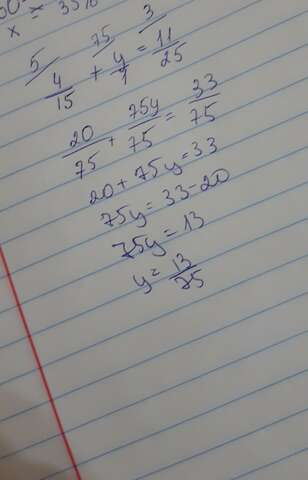 x = 3
5/ 75/ 3/
4/15 + y/1 = 11/25
20/75 + 75y/75 = 33/75
20 + 75y = 33
75y = 33 - 20
75y = 13
y = 13/75